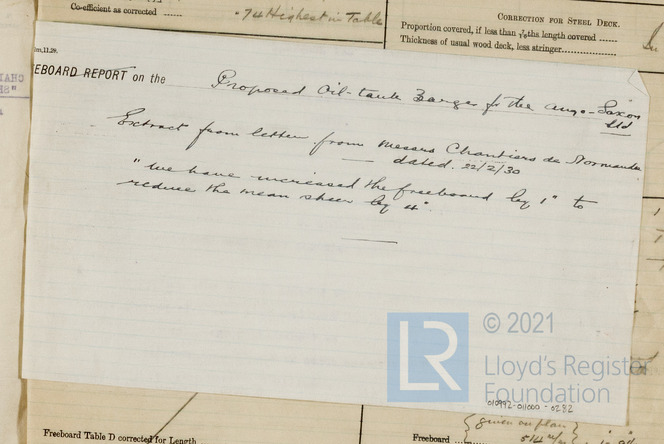 Co-efficient as corrected ......
.74 Highest in Table
CORRECTION FOR STEEL DECK.
Proportion covered, if less than 7/10ths length covered ......
Thickness of usual wood deck, less stringer..............
m,11,29.
EEBOARD REPORT on the
Proposed Oil-tank Barges for the Anglo-Saxon
Ltd
Extract from letter from Messrs Chantiers de Normandie
dated. 22/2/30
"We have increased the freeboard by 1" to
reduce the mean sheer by 4"
LR
© 2021
Lloyd's Register
Foundation
010992-011000-0282
Freeboard Table D corrected for Length
given on plan
Freeboard